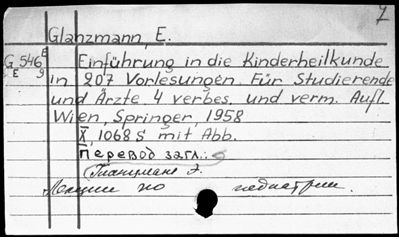 7
Glanzmann, E.
G 546 E
E 9
Einführung in die Kinderheilkunde
in 207 Vorlesungen. Für Studierende
und Ärzte. 4 verbes. und verm. Aufl.
Wien, Springer, 1958
X, 1068 S mit Abb.
Перевод загл.:
Гланцманн Э.
Лекции по педиатрии.